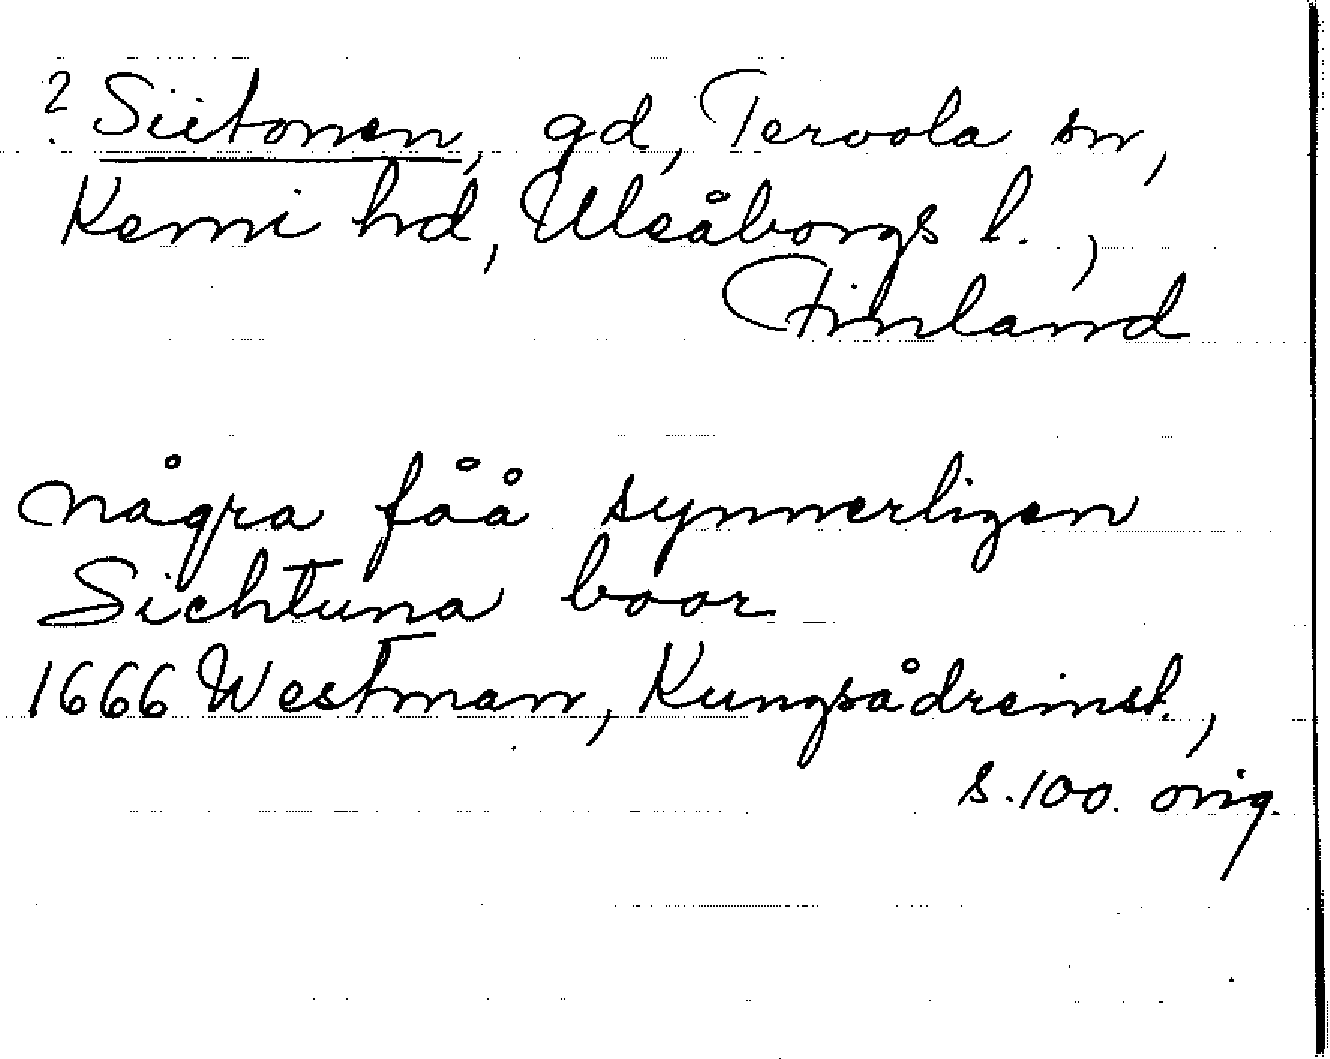 ? Siitonen, gd, Tervola sn,
Kemi hd, Uleåborgs l.,
Finland
några fåå synnerligen
Sichtuna boar
1666 Westman, Kungsådreinst.,
s. 100. orig.